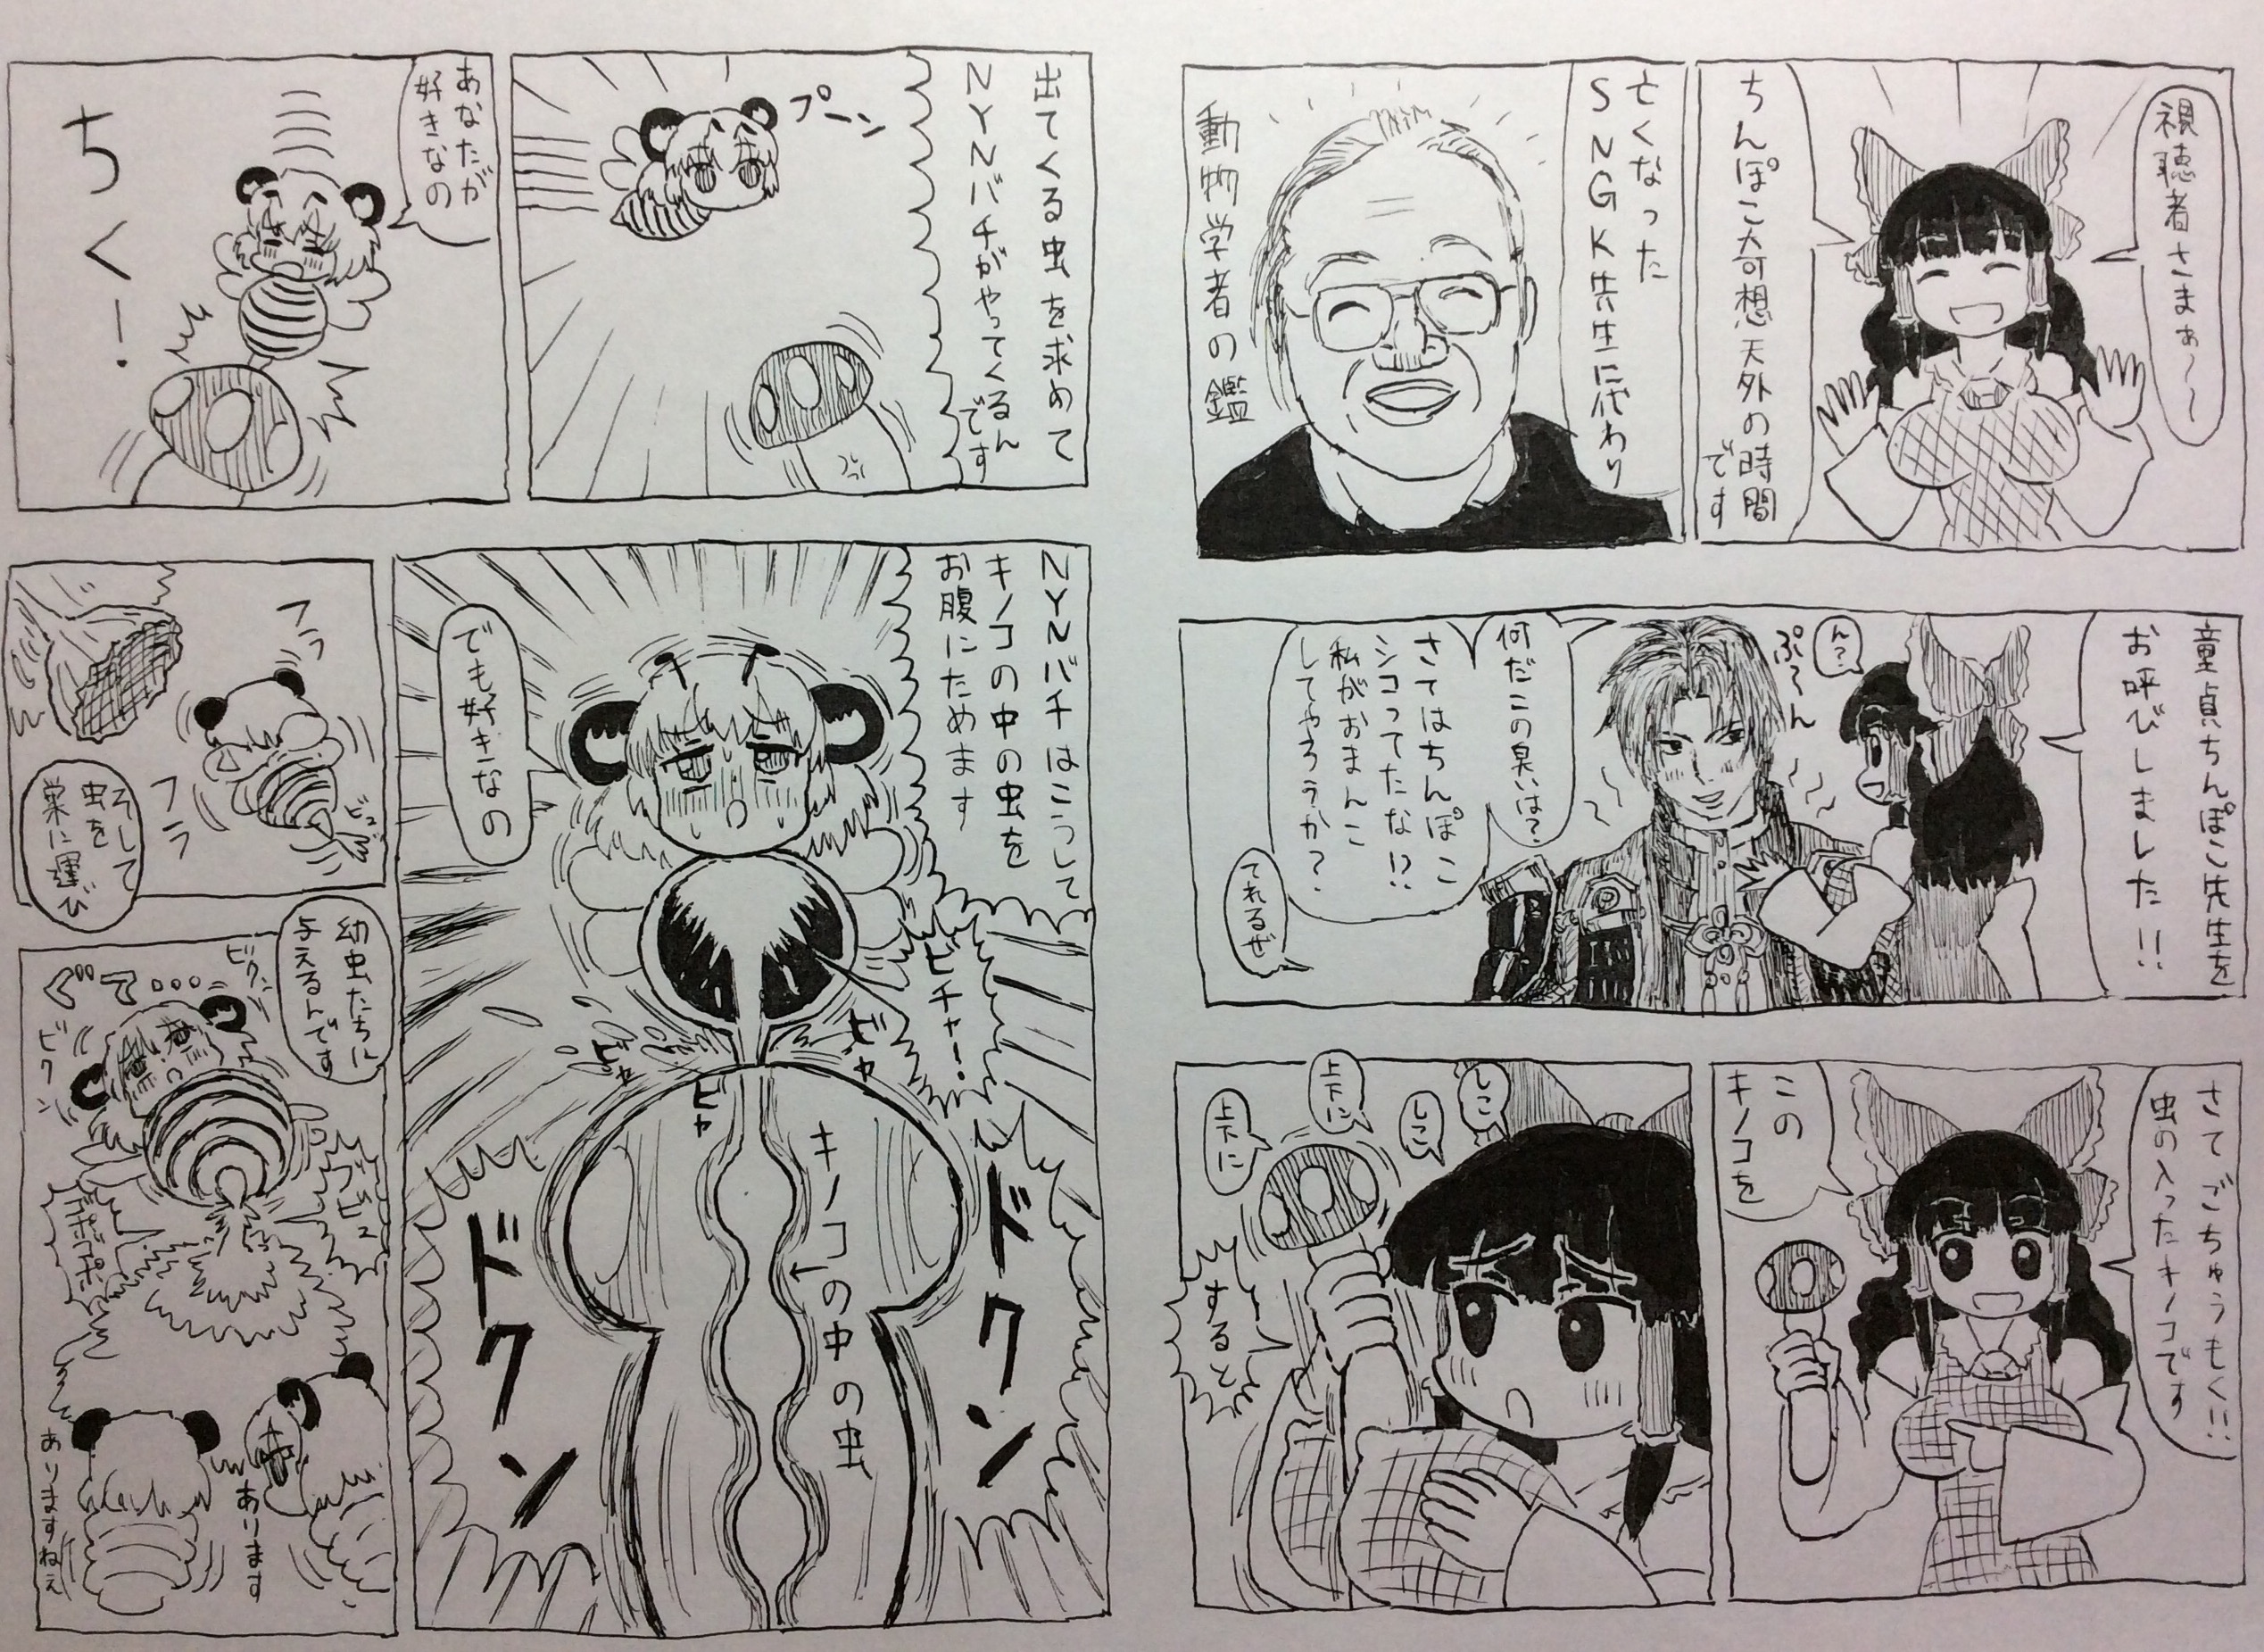 視聴者さまぁ〜〜
ちんぽこ奇想天外の時間
です
亡くなった
SNGK先生に代わり
動物学者の鑑
童貞ちんぽこ先生を
お呼びしました!!
ん?
ぷ〜ん
何だこの臭いは?
さてはちんぽこ
シコってたな!?
私がおまんこ
してやろうか?
てれるぜ
さてごちゅうもく!!
虫の入ったキノコです
この
キノコを
しこ
しこ
上下に
上下に
すると
出てくる虫を求めて
NYNバチがやってくるん
です
プーン
あなたが
好きなの
ちくー!
NYNバチはこうして
キノコの中の虫を
お腹にためます
でも好きなの
ビチャー!
ビャ
ビャ
ビャ
キノコの中の虫
ドクン
ドクン
フラ
フラ
ビュ
そして
虫を
巣に運び
幼虫たちに
与えるんです
ぐて...
ビクン
ビクン
ブビュ
ゴポポ
あります
ありますねぇ